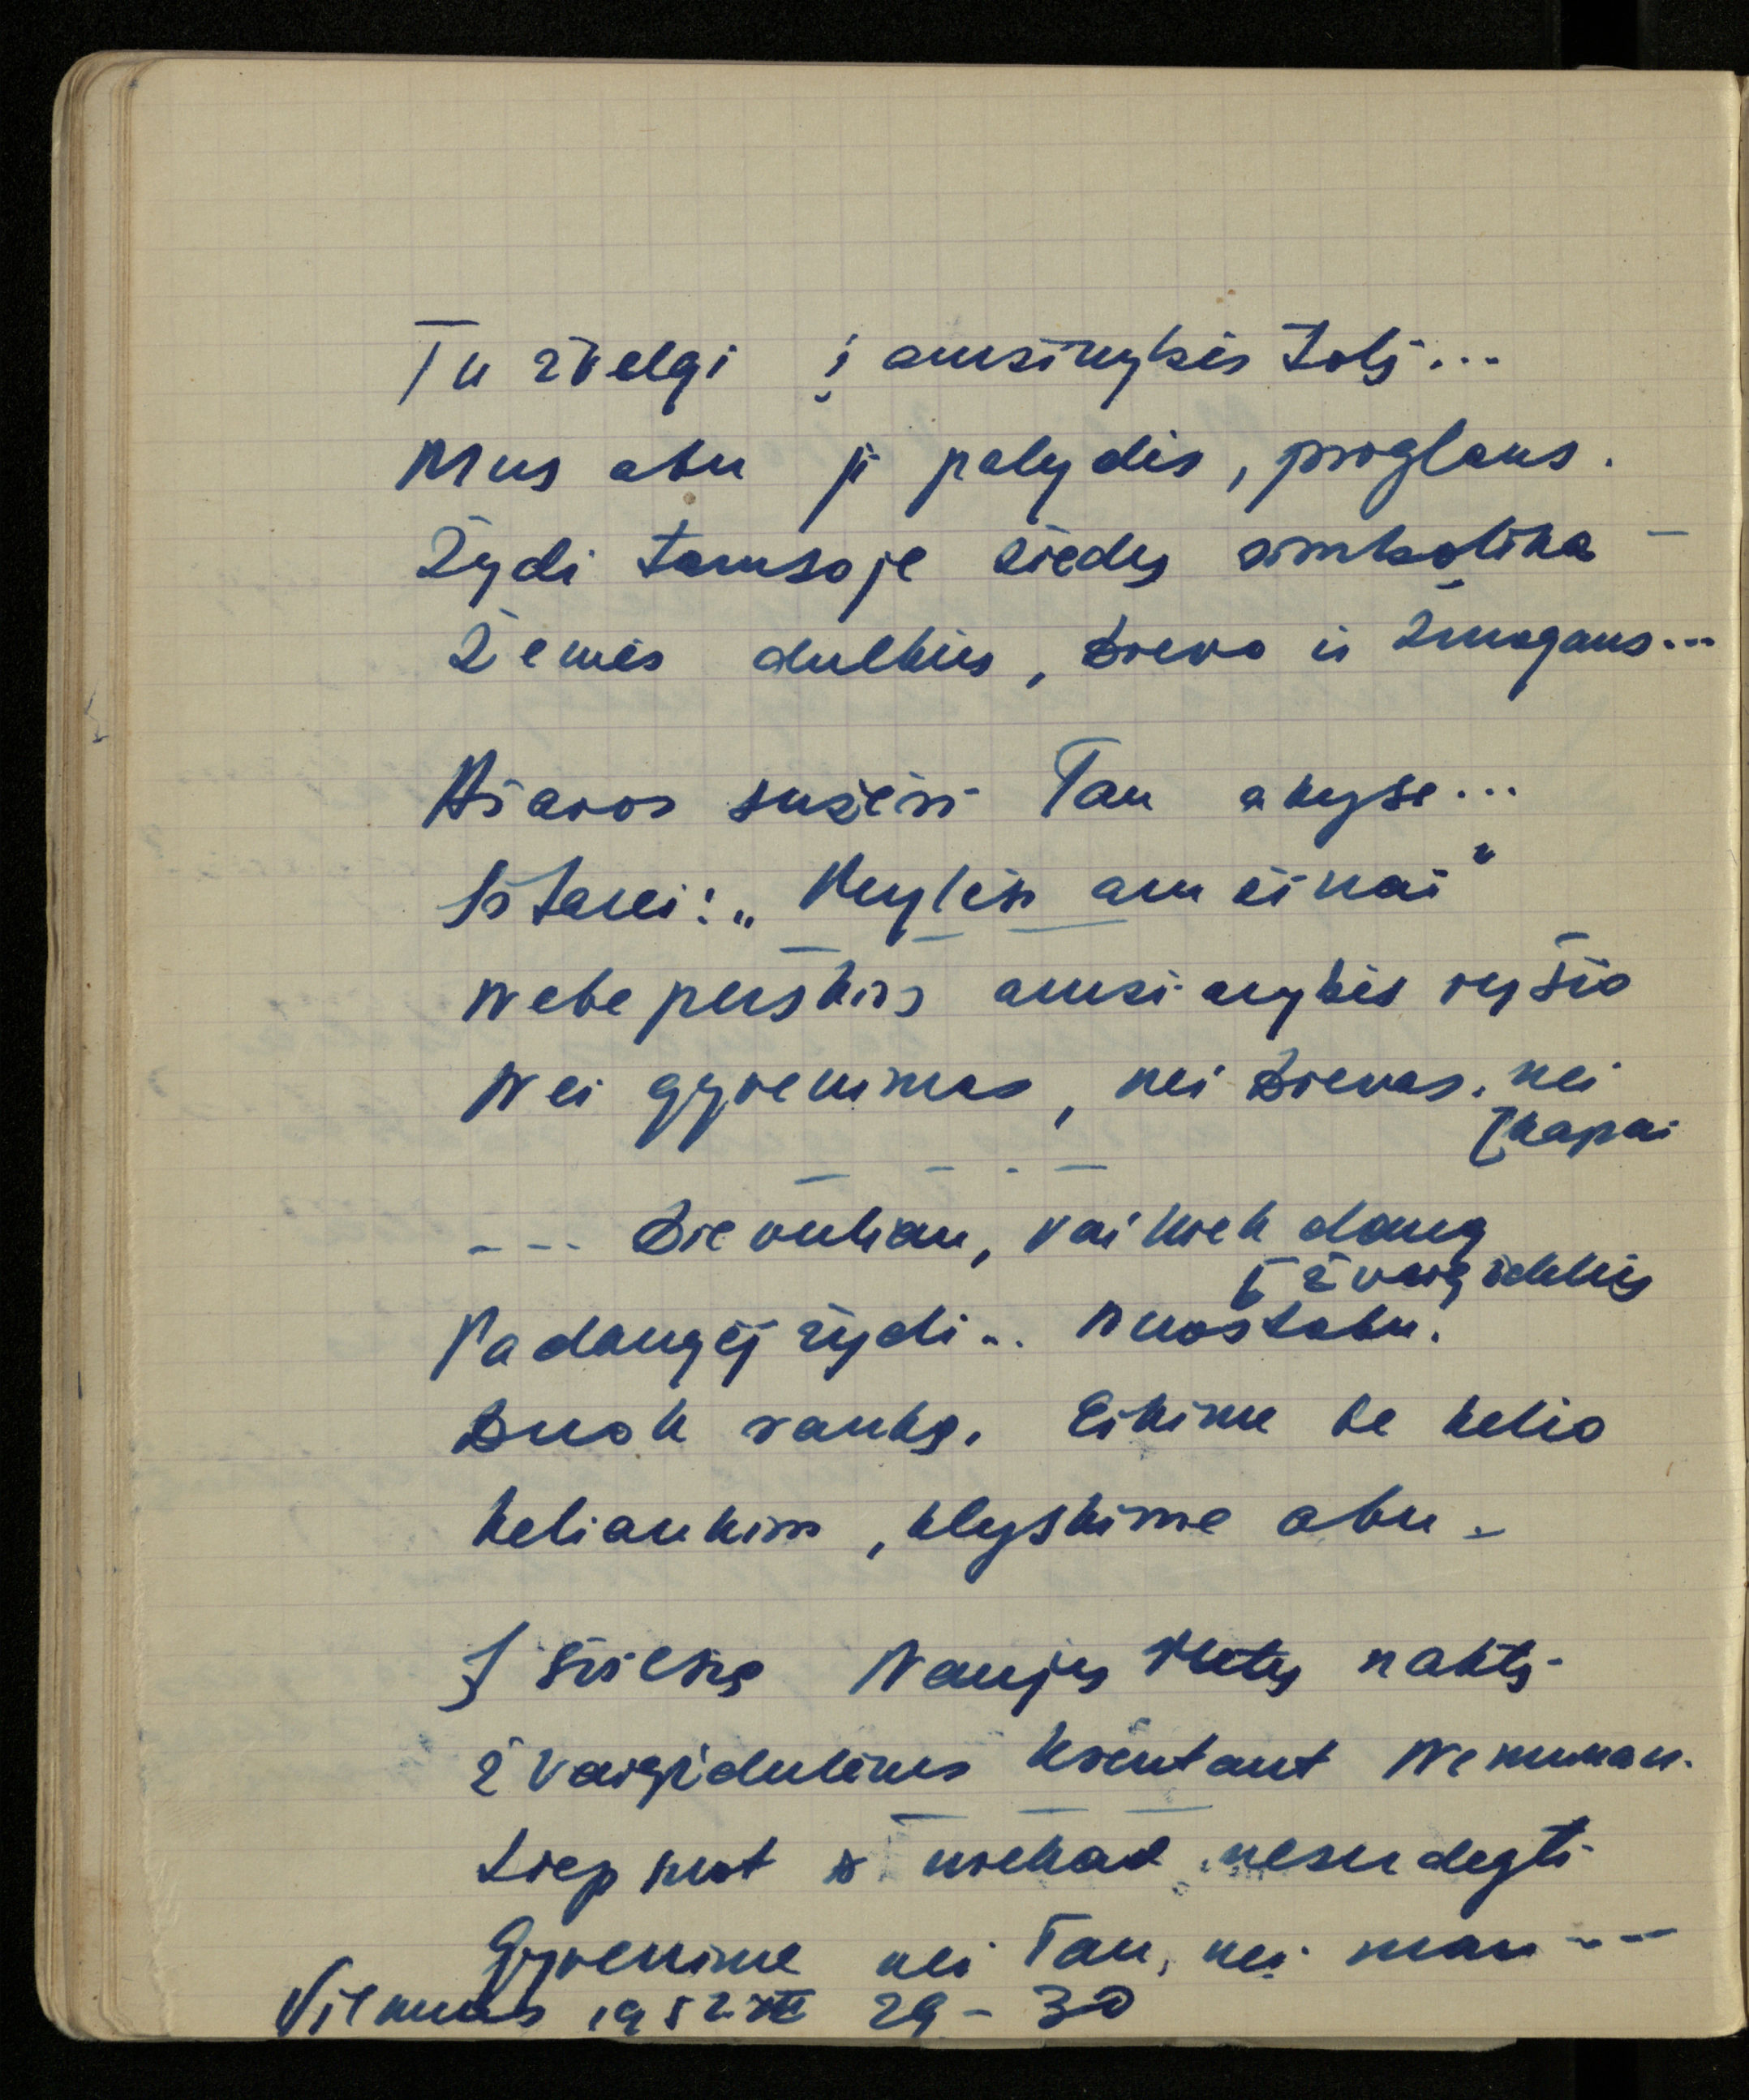 Tu žvelgi į amžinybės tolį...
Mus abu ji palydės, priglaus.
Žydi tamsoje žiedų simbolika –
Žemės dulkės, Dievo ir Žmogaus...
Ašaros sužėri Tau akyse...
Ištarei: „Mylėsi amžinai“
Nebeperskirs amžinybės ryšio
Nei gyvenimas, nei Dievas, nei
[kapai
--- Dievuliau, vai kiek daug
[žvaigždelių
Padangėj žydi... Nuostabu.
Duok ranką. Eikime be kelio
Keliaukim, klyskime abu.
Į šviesią Naujųjų Metų naktį
Žvaigždulėms krentant Nemunan.
Liepsnot ir niekad nesudegti
Gyvenime nei Tau, nei man ---
Vilnius 1952 XII 29-30